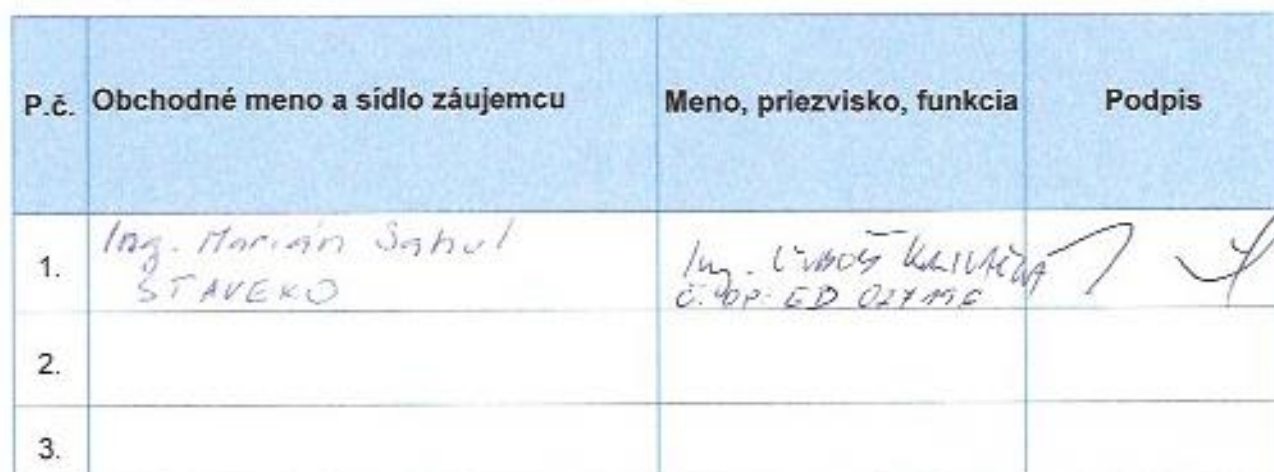 P.č. Obchodné meno a sídlo záujemcu Meno, priezvisko, funkcia Podpis
1. Ing. Marián Sahul
STAVEKO
Ing. Ľuboš
č. OP: ED
2.
3.